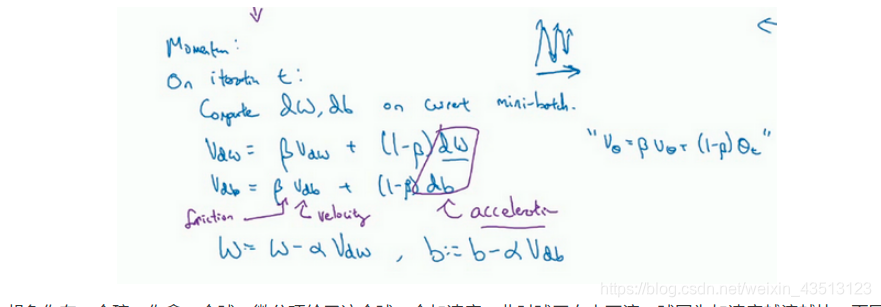 Momentum:
On iteration t:
Compute dW, db on current mini-batch.
Vdw = β Vdw + (1-β) dW
"Vθ = β Vθ + (1-β) θt"
Vdb = β Vdb + (1-β) db
friction velocity acceleration
W = W - α Vdw , b := b - α Vdb
https://blog.csdn.net/weixin_43513123